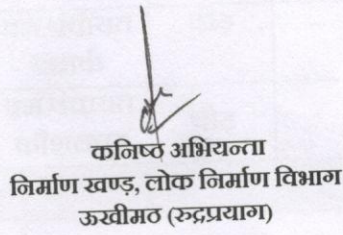 कनिष्ठ अभियन्ता
निर्माण खण्ड़, लोक निर्माण विभाग
ऊखीमठ (रुद्रप्रयाग)